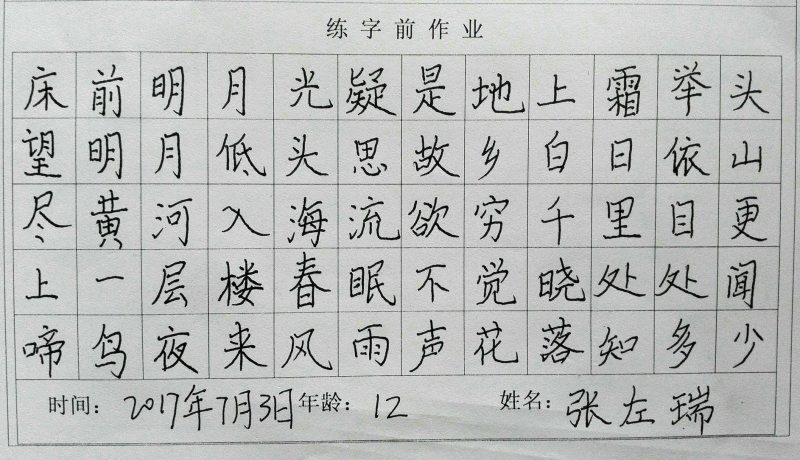 练字前作业
床前明月光疑是地上霜举头
望明月低头思故乡白日依山
尽黄河入海流欲穷千里目更
上一层楼春眠不觉晓处处闻
啼鸟夜来风雨声花落知多少
时间：2017年7月3日年龄：12 姓名：张左瑞